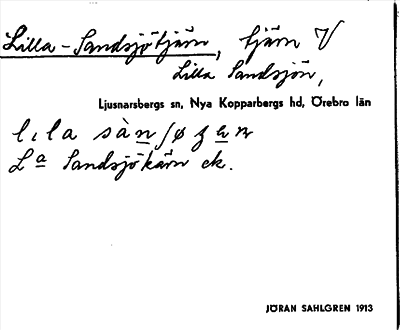 Lilla-Sandsjötjärn, tjärn V
Lilla Sandsjön,
Ljusnarsbergs sn, Nya Kopparbergs hd, Örebro län
La Sandsjökärn ek.
JÖRAN SAHLGREN 1913